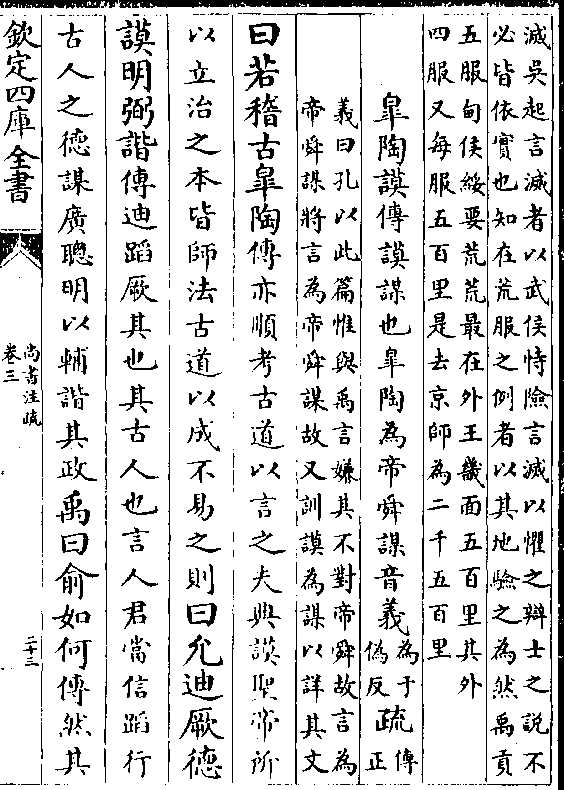 滅吳起言滅者以武侯恃險言滅以懼之辯士之說不
必皆依實也知在荒服之例者以其地驗之為然禹貢
五服甸侯綏要荒荒最在外王畿面五百里其外
四服又每服五百里是去京師為二千五百里
皐陶謨傳謨謀也皐陶為帝舜謀音義為于偽反疏傳正
義曰孔以此篇惟與禹言嫌其不對帝舜故言為
帝舜謀將言為帝舜謀故又訓謨為謀以詳其文
曰若稽古皐陶傳亦順考古道以言之夫典謨聖帝所
以立治之本皆師法古道以成不易之則曰允迪厥德
謨明弼諧傳迪蹈厥其也其古人也言人君當信蹈行
古人之德謀廣聰明以輔諧其政禹曰俞如何傳然其
欽定四庫全書
尚書注疏
卷三
二十三